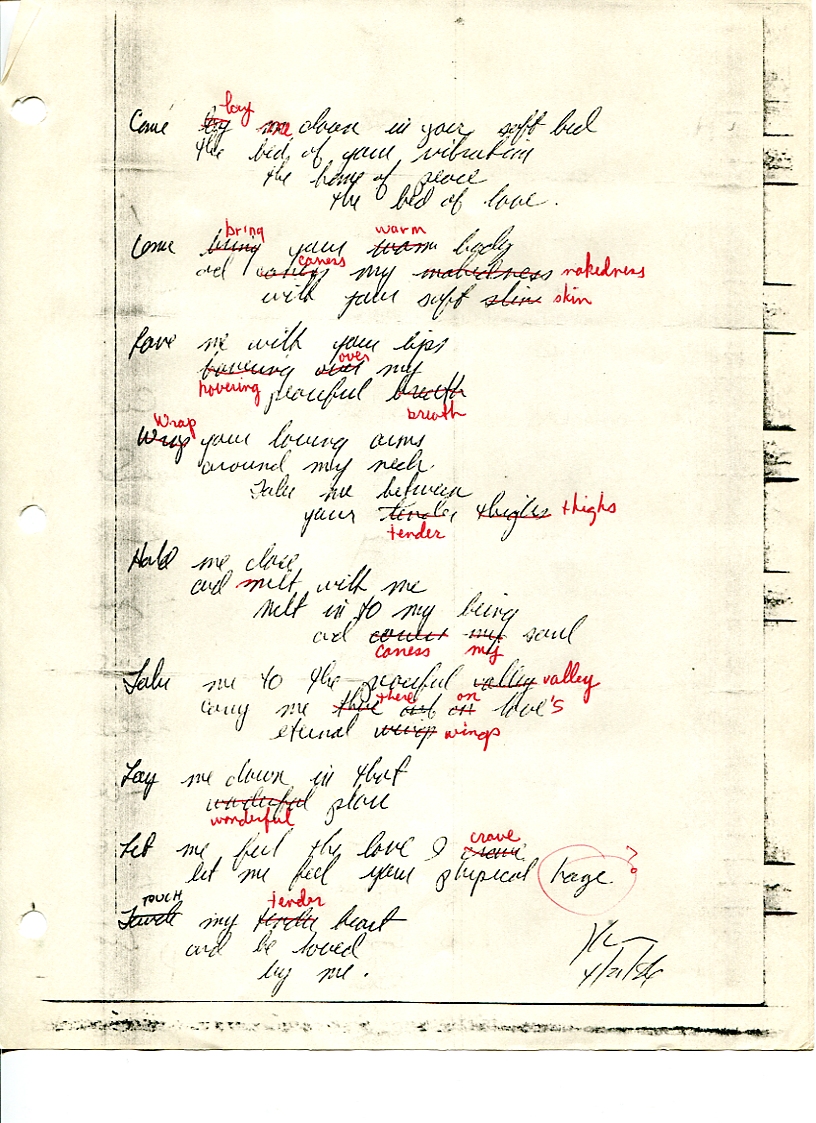 Come lay me down in your soft bed
the bed of your vibration
the home of peace
the bed of love.
Come bring your warm body
and caress my nakedness
with your soft skin
Love me with your lips
hovering over my
peaceful breath
Wrap your loving arms
around my neck
Take me between
your tender thighs
Hold me close
and melt with me
melt in to my being
and caress my soul
Take me to the peaceful valley
carry me there on love's
eternal wings
Lay me down in that
wonderful place
Let me feel the love I crave
let me feel your physical ?
TOUCH my tender heart
and be loved
by me.
4/21/86